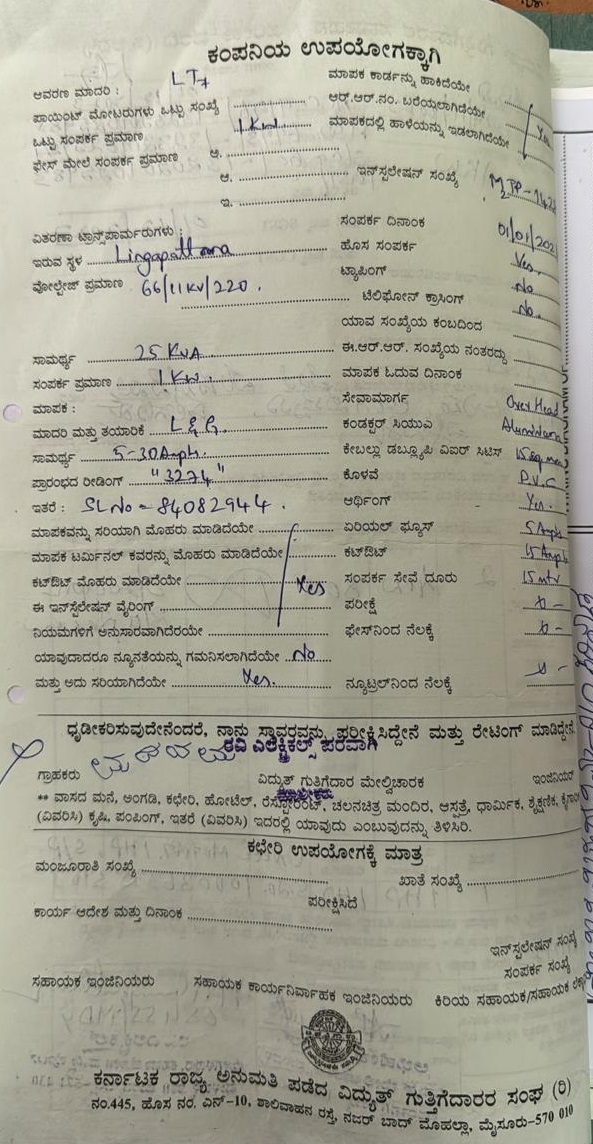 ಕಂಪನಿಯ ಉಪಯೋಗಕ್ಕಾಗಿ
ಆವರಣ ಮಾದರಿ : LT7 ಮಾಪಕ ಕಾರ್ಡನ್ನು ಹಾಕಿದೆಯೇ
ಪಾಯಿಂಟ್ ಮೋಟರುಗಳು ಒಟ್ಟು ಸಂಖ್ಯೆ ಆರ್.ಆರ್.ನಂ. ಬರೆಯಲಾಗಿದೆಯೇ
ಒಟ್ಟು ಸಂಪರ್ಕ ಪ್ರಮಾಣ 1KW ಮಾಪಕದಲ್ಲಿ ಹಾಳೆಯನ್ನು ಇಡಲಾಗಿದೆಯೇ Yes
ಫೇಸ್ ಮೇಲೆ ಸಂಪರ್ಕ ಪ್ರಮಾಣ ಅ.
ಆ. ಇನ್‌ಸ್ಟಲೇಷನ್ ಸಂಖ್ಯೆ
ಇ.
ವಿತರಣಾ ಟ್ರಾನ್ಸ್‌ಫಾರ್ಮರುಗಳು : ಸಂಪರ್ಕ ದಿನಾಂಕ 01/01/202
ಇರುವ ಸ್ಥಳ Lingapattana ಹೊಸ ಸಂಪರ್ಕ Yes.
ವೋಲ್ಟೇಜ್ ಪ್ರಮಾಣ 66/11KV/220. ಟ್ಯಾಪಿಂಗ್ No
ಟೆಲಿಫೋನ್ ಕ್ರಾಸಿಂಗ್ No.
ಯಾವ ಸಂಖ್ಯೆಯ ಕಂಬದಿಂದ
ಸಾಮರ್ಥ್ಯ 25 KVA ಈ.ಆರ್.ಆರ್. ಸಂಖ್ಯೆಯ ನಂತರದ್ದು
ಸಂಪರ್ಕ ಪ್ರಮಾಣ 1KW. ಮಾಪಕ ಓದುವ ದಿನಾಂಕ
ಮಾಪಕ : ಸೇವಾಮಾರ್ಗ Over Head
ಮಾದರಿ ಮತ್ತು ತಯಾರಿಕೆ L&G. ಕಂಡಕ್ಟರ್ ಸಿಯುಎ
ಸಾಮರ್ಥ್ಯ 5-30Amph. ಕೇಬಲ್ಲು ಡಬ್ಲ್ಯೂಪಿ ವಿಐರ್ ಸಿಟಿಸ್
ಪ್ರಾರಂಭದ ರೀಡಿಂಗ್ "3274" ಕೊಳವೆ P.V.C
ಇತರೆ : SL No = 84082944. ಆರ್ಥಿಂಗ್ Yes.
ಮಾಪಕವನ್ನು ಸರಿಯಾಗಿ ಮೊಹರು ಮಾಡಿದೆಯೇ ಏರಿಯಲ್ ಫ್ಯೂಸ್ 5 Amph
ಮಾಪಕ ಟರ್ಮಿನಲ್ ಕವರನ್ನು ಮೊಹರು ಮಾಡಿದೆಯೇ ಕಟ್‌ಔಟ್ 15 Amph
ಕಟ್‌ಔಟ್ ಮೊಹರು ಮಾಡಿದೆಯೇ Yes ಸಂಪರ್ಕ ಸೇವೆ ದೂರು 15 mtr
ಈ ಇನ್‌ಸ್ಟೆಲೇಷನ್ ವೈರಿಂಗ್ ಪರೀಕ್ಷೆ
ನಿಯಮಗಳಿಗೆ ಅನುಸಾರವಾಗಿದೆರಯೇ ಫೇಸ್‌ನಿಂದ ನೆಲಕ್ಕೆ
ಯಾವುದಾದರೂ ನ್ಯೂನತೆಯನ್ನು ಗಮನಿಸಲಾಗಿದೆಯೇ No
ಮತ್ತು ಅದು ಸರಿಯಾಗಿದೆಯೇ Yes. ನ್ಯೂಟ್ರಲ್‌ನಿಂದ ನೆಲಕ್ಕೆ
ಧೃಡೀಕರಿಸುವುದೇನೆಂದರೆ, ನಾನು ಸ್ಥಾವರವನ್ನು ಪರೀಕ್ಷಿಸಿದ್ದೇನೆ ಮತ್ತು ರೇಟಿಂಗ್ ಮಾಡಿದ್ದೇನೆ.
ರವಿ ಎಲೆಕ್ಟ್ರಿಕಲ್ಸ್ ಪರವಾಗಿ
ಗ್ರಾಹಕರು ವಿದ್ಯುತ್ ಗುತ್ತಿಗೆದಾರ ಮೇಲ್ವಿಚಾರಕ ಇಂಜಿನಿಯರ್
** ವಾಸದ ಮನೆ, ಅಂಗಡಿ, ಕಛೇರಿ, ಹೋಟೆಲ್, ರೆಸ್ಟೋರೆಂಟ್, ಚಲನಚಿತ್ರ ಮಂದಿರ, ಆಸ್ಪತ್ರೆ, ಧಾರ್ಮಿಕ, ಶೈಕ್ಷಣಿಕ,
(ವಿವರಿಸಿ) ಕೃಷಿ, ಪಂಪಿಂಗ್, ಇತರೆ (ವಿವರಿಸಿ) ಇದರಲ್ಲಿ ಯಾವುದು ಎಂಬುವುದನ್ನು ತಿಳಿಸಿರಿ.
ಕಛೇರಿ ಉಪಯೋಗಕ್ಕೆ ಮಾತ್ರ
ಮಂಜೂರಾತಿ ಸಂಖ್ಯೆ ಖಾತೆ ಸಂಖ್ಯೆ
ಪರೀಕ್ಷಿಸಿದೆ
ಕಾರ್ಯ ಆದೇಶ ಮತ್ತು ದಿನಾಂಕ
ಇನ್‌ಸ್ಟಲೇಷನ್ ಸಂಖ್ಯೆ
ಸಂಪರ್ಕ ಸಂಖ್ಯೆ
ಸಹಾಯಕ ಇಂಜಿನಿಯರು ಸಹಾಯಕ ಕಾರ್ಯನಿರ್ವಾಹಕ ಇಂಜಿನಿಯರು ಕಿರಿಯ ಸಹಾಯಕ/ಸಹಾಯಕ
ಕರ್ನಾಟಕ ರಾಜ್ಯ ಅನುಮತಿ ಪಡೆದ ವಿದ್ಯುತ್ ಗುತ್ತಿಗೆದಾರರ ಸಂಘ (ರಿ)
ನಂ.445, ಹೊಸ ನಂ. ಎನ್-10, ಶಾಲಿವಾಹನ ರಸ್ತೆ, ನಜರ್ ಬಾದ್ ಮೊಹಲ್ಲಾ, ಮೈಸೂರು-570 010